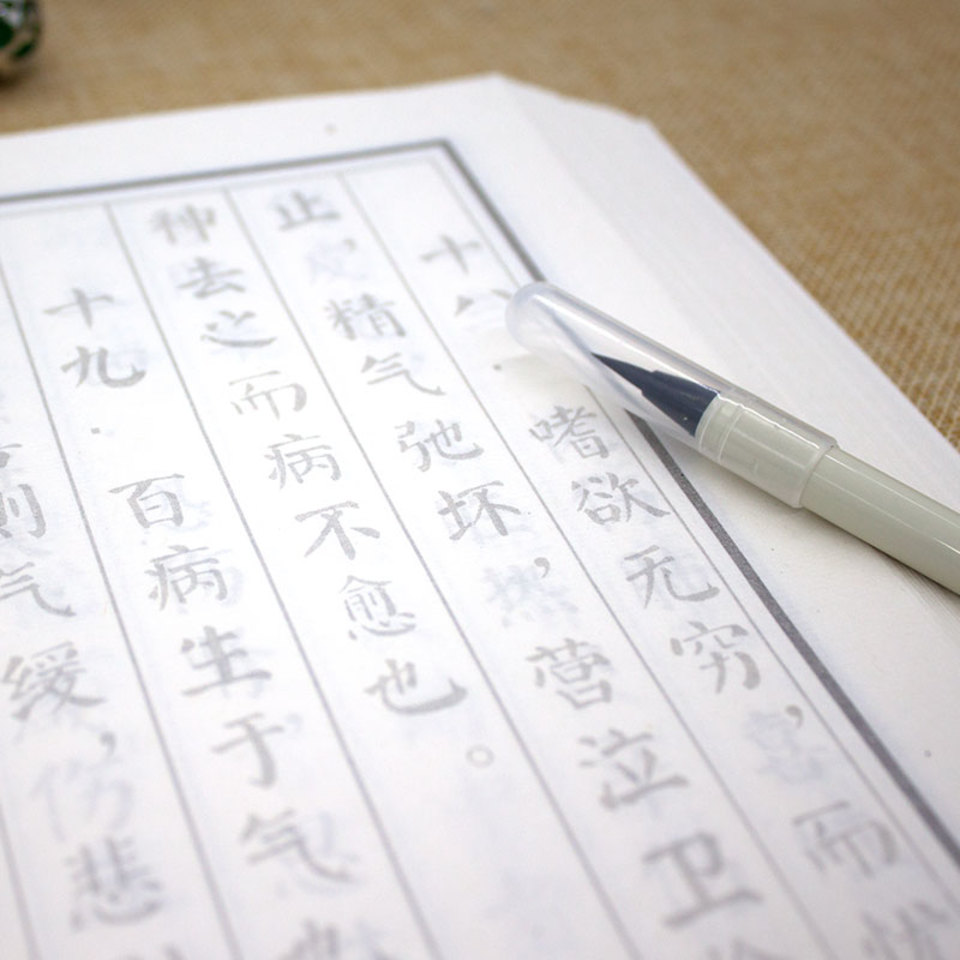 十八·嗜欲无穷，而忧
止，精气弛坏，营泣卫
神去之而病不愈也。
十九·百病生于气
则气缓，悲